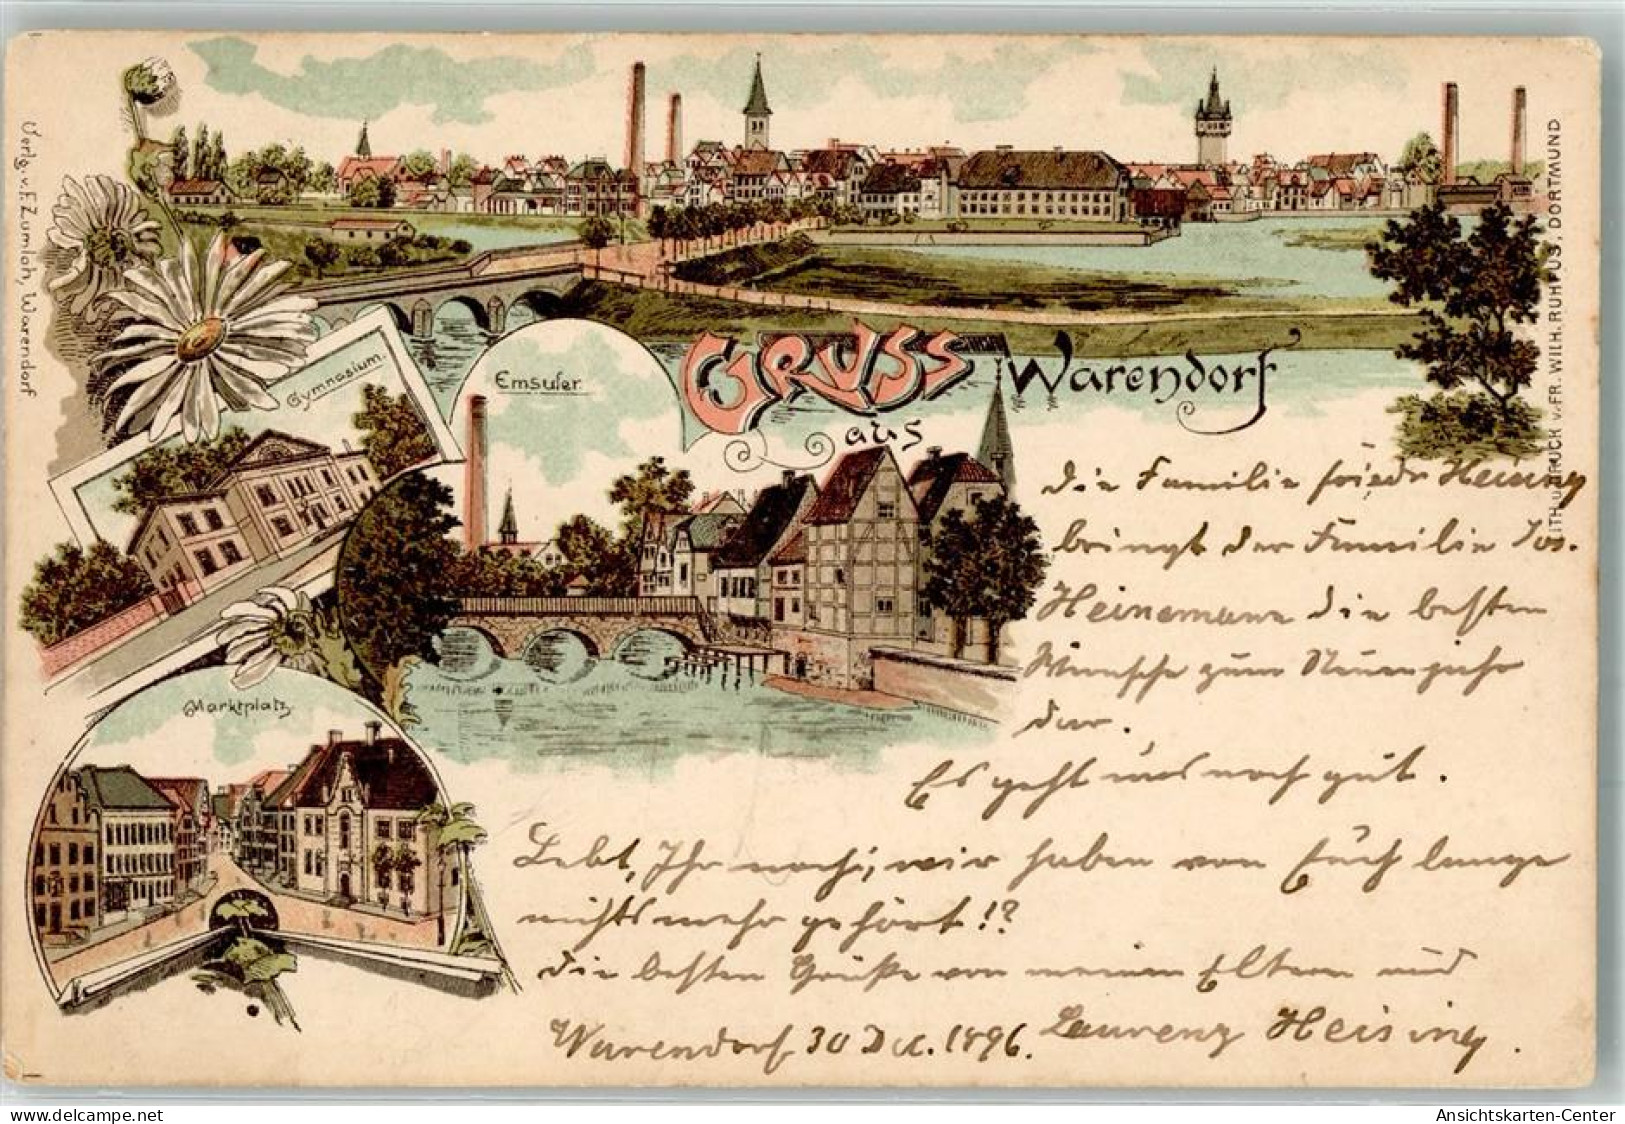 Verlg. v. F. Zumloh, Warendorf
LITH. u. DRUCK v. FR. WILH. RUHFUS, DORTMUND
Gruss
aus
Warendorf
Gymnasium.
Emsufer
Marktplatz
Die Familie Heising
bringt der Familie Jos.
Heinemann die besten
Wünsche zum Neuenjahr
dar.
Es geht uns noch gut.
Lebt, Ihr noch, wir haben von Euch lange
nichts mehr gehört!?
Die besten Grüße von meinen Eltern und
Warendorf 30 Dec. 1896. Laurenz Heising.
www.delcampe.net
Ansichtskarten-Center